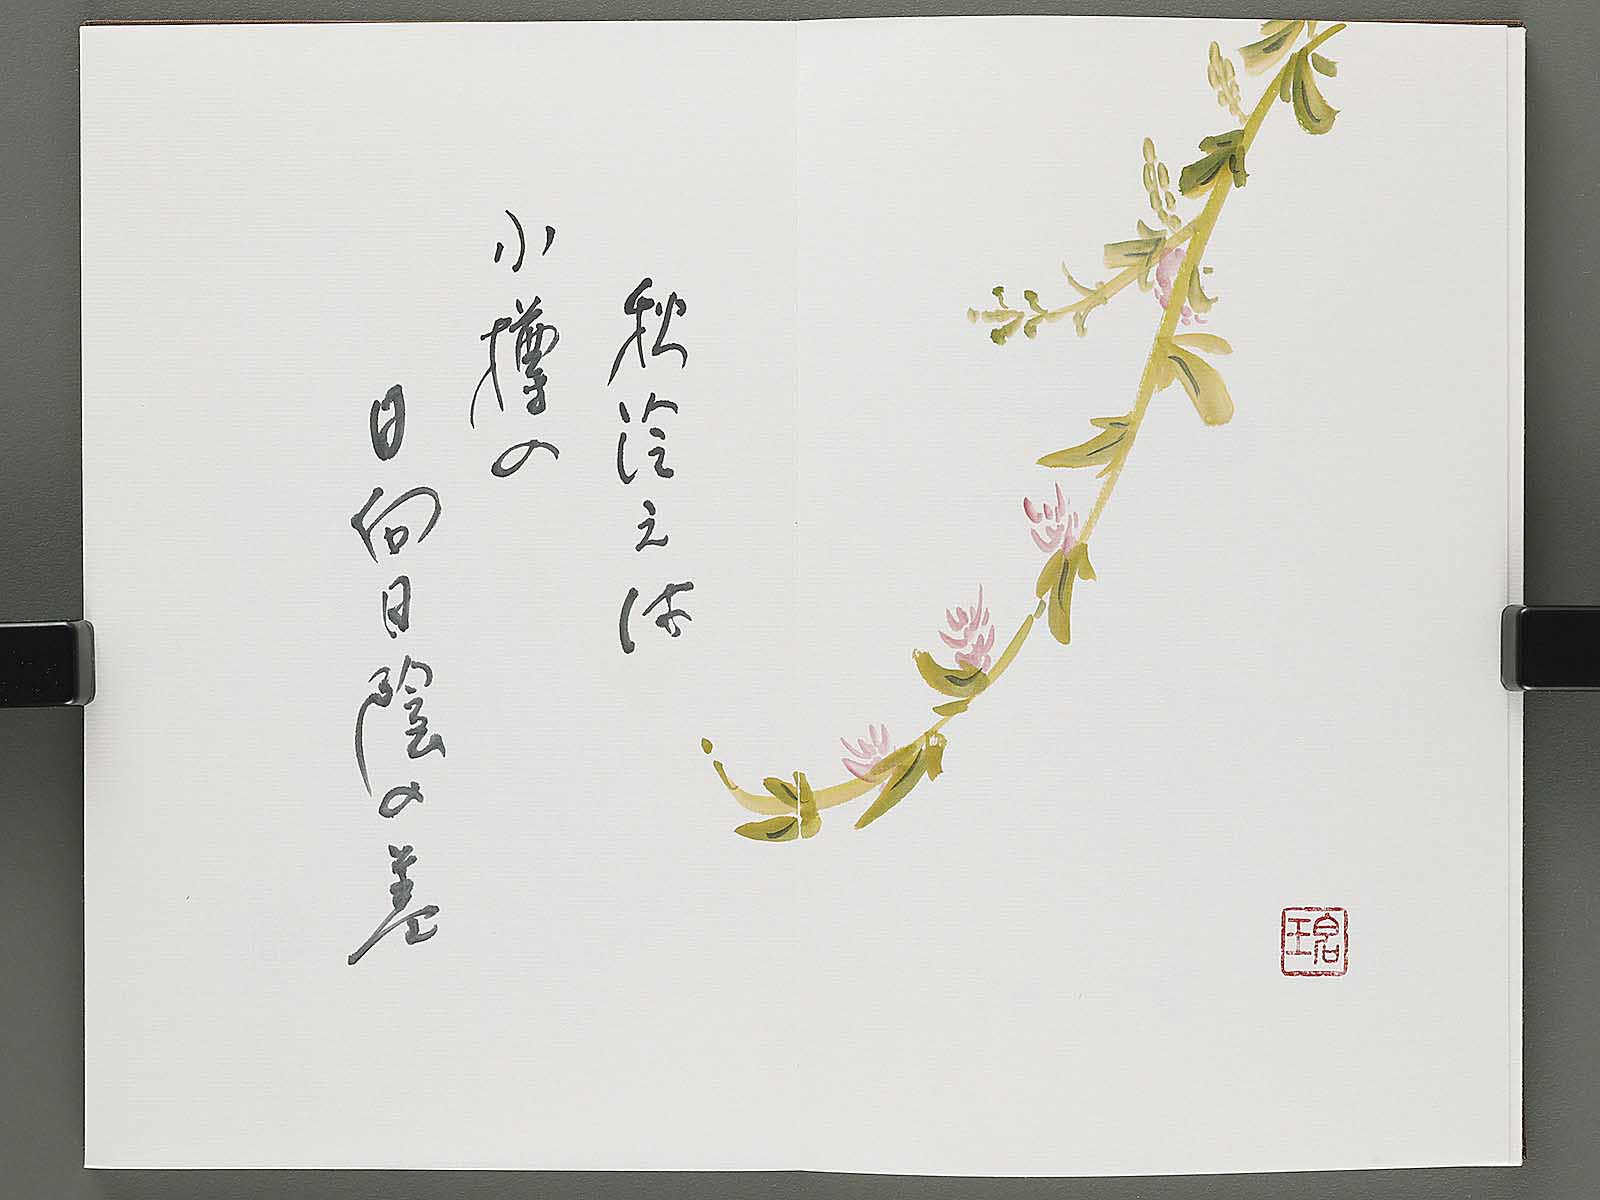 秋冷えは
小樽の
日向日陰の差